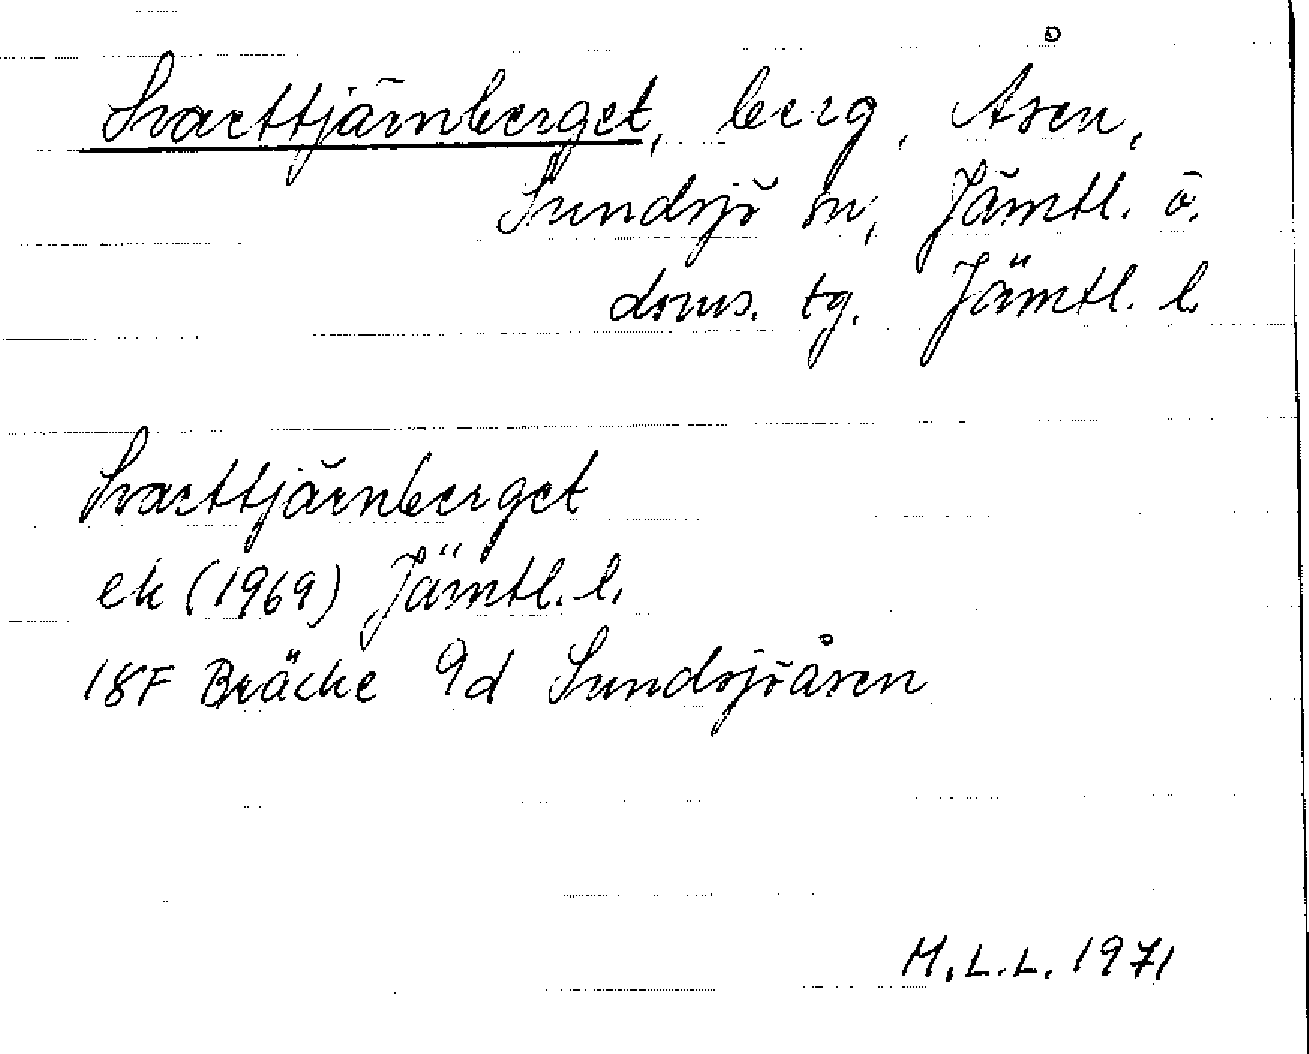 Svarttjärnberget, berg, Åsen,
Sundsjö sn, Jämtl. ö.
doms. tg. Jämtl. l.
Svarttjärnberget
ek (1969) Jämtl. l.
18F Bräcke 9d Sundsjöåsen
M.L.L. 1971